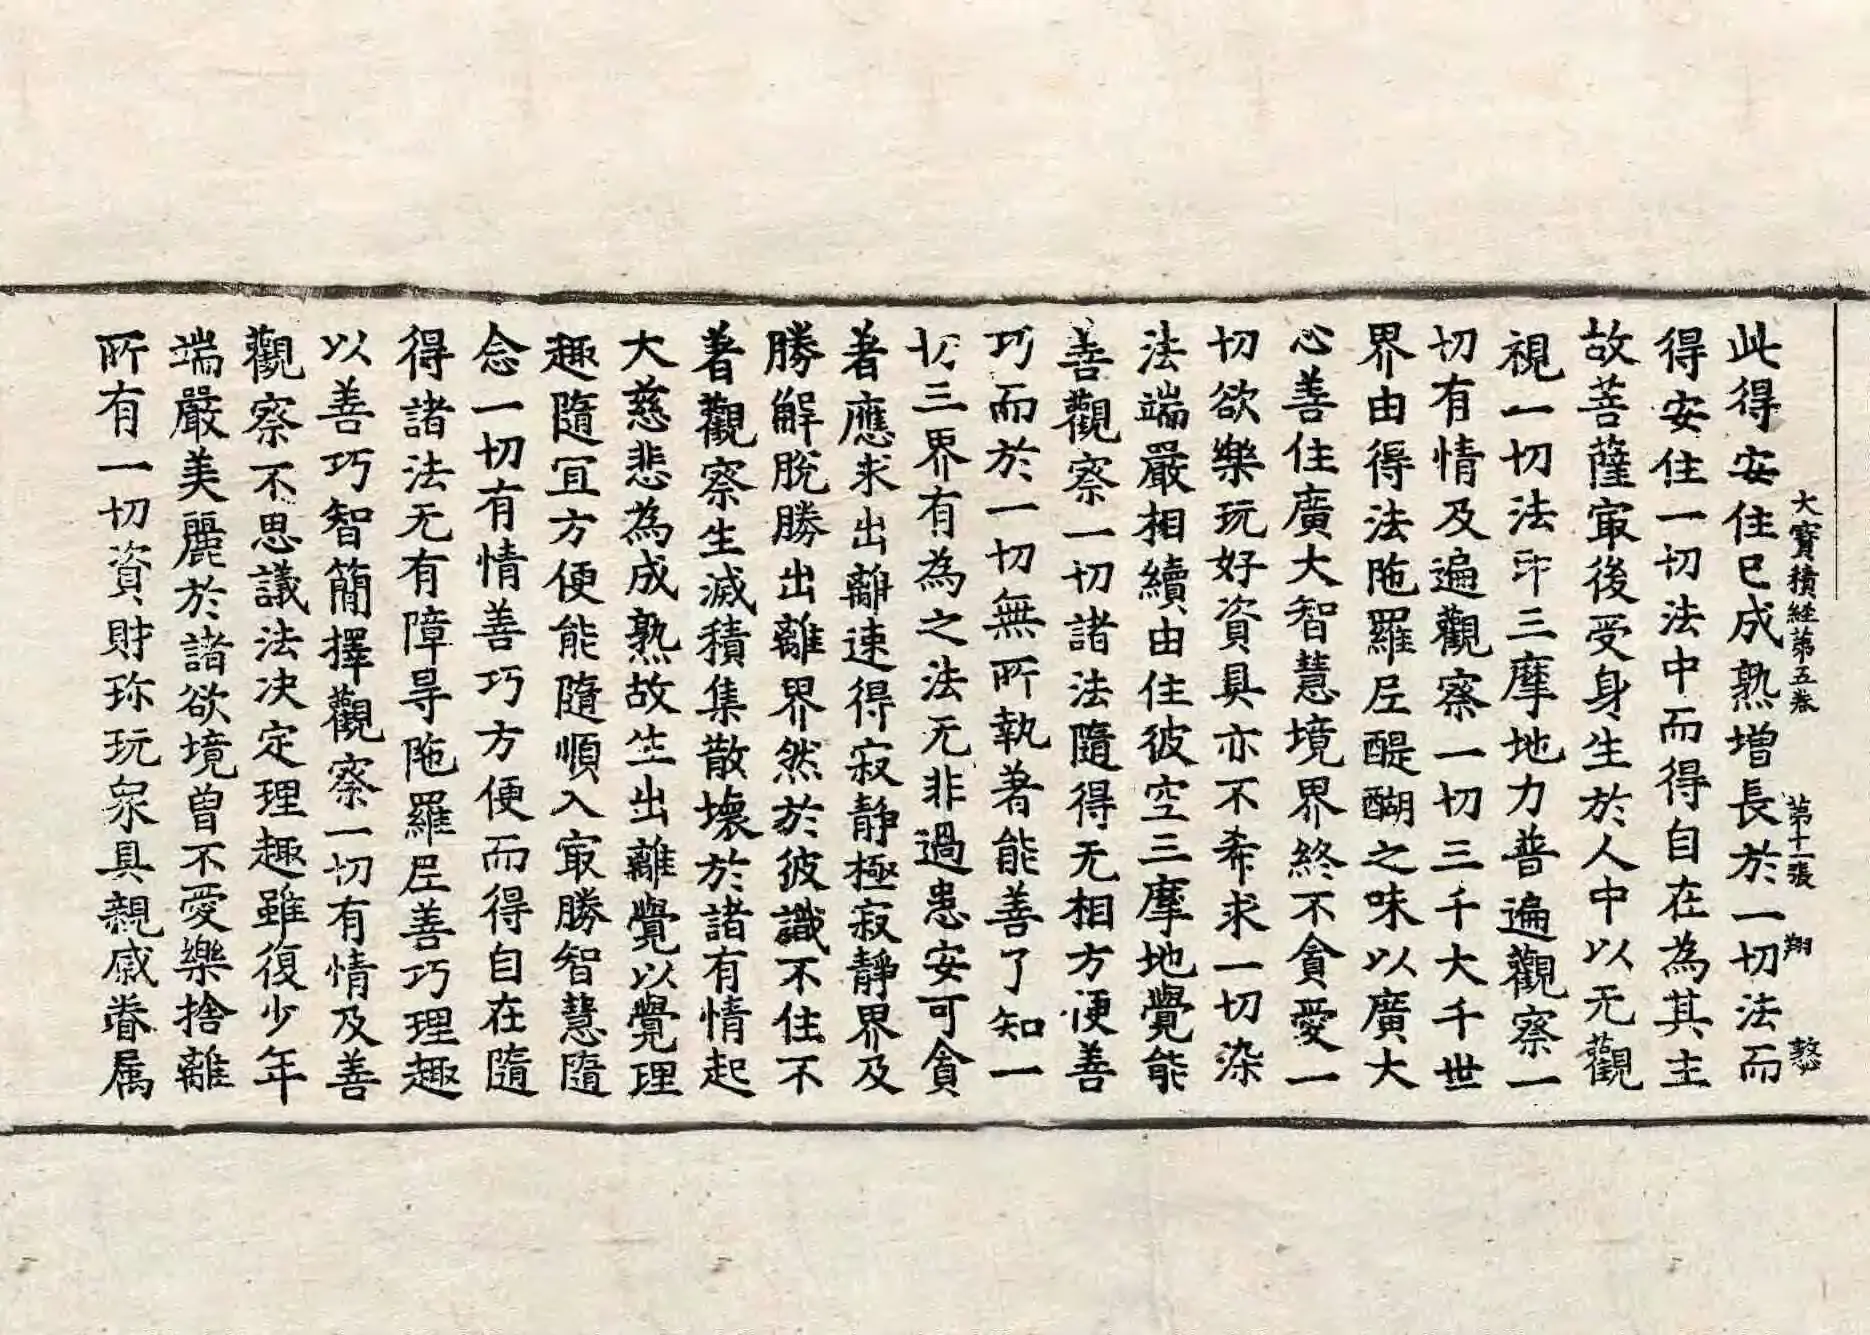 大寶積經第五卷 第十一張 翔
此得安住已成熟增長於一切法而
得安住一切法中而得自在為其主
故菩薩㝡後受身生於人中以无觀
視一切法印三摩地力普遍觀察一
切有情及遍觀察一切三千大千世
界由得法陁羅尼醍醐之味以廣大
心善住廣大智慧境界終不貪愛一
切欲樂玩好資具亦不希求一切染
法端嚴相續由住彼空三摩地覺能
善觀察一切諸法隨得无相方便善
巧而於一切無所執著能善了知一
切三界有為之法无非過患安可貪
著應求出離速得寂靜極寂靜界及
勝解脫勝出離界然於彼識不住不
著觀察生滅積集散壞於諸有情起
大慈悲為成熟故生出離覺以覺理
趣隨冝方便能隨順入㝡勝智慧隨
念一切有情善巧方便而得自在隨
得諸法无有障㝵陁羅尼善巧理趣
以善巧智簡擇觀察一切有情及善
觀察不思議法决定理趣雖復少年
端嚴美麗於諸欲境曾不愛樂捨離
所有一切資財珎玩衆具親戚眷属